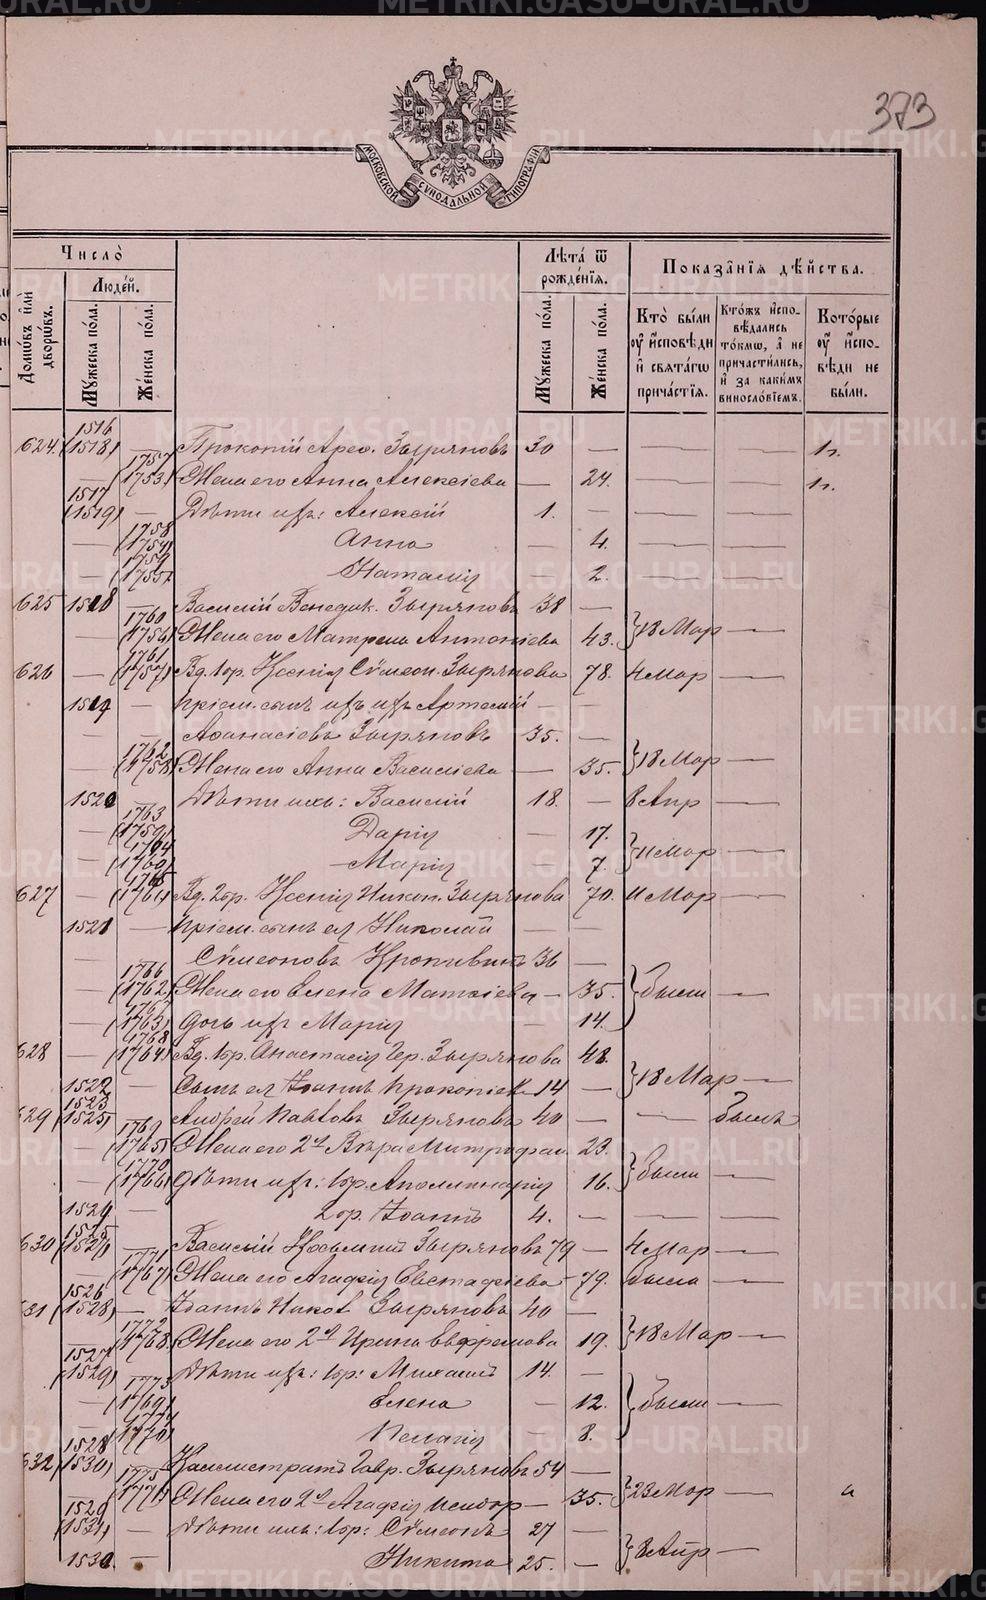 373
МОСКОВСКОЙ СУНОДАЛЬНОЙ ТИПОГРАФІИ
Число̀
Люде́й.
Домѡвъ и҆лѝ дворѡ́въ.
Мꙋ́жеска по́ла.
Же́нска по́ла.
Лѣ́та ѿ рожде́нїѧ.
Мꙋ́жеска по́ла.
Же́нска по́ла.
Показа̑нїѧ дѣ́йства.
Кто̀ бы́ли ᲂу҆ и҆сповѣ́ди и҆ свѧта́гѡ прича́стїѧ.
Кто́жъ и҆спо-вѣ́дались то́кмѡ, а҆ не причасти́лись, и҆ за каки́мъ винослѡ́вїемъ.
Кото́рые ᲂу҆ и҆спо-вѣ́ди не бы́ли.
624. 1516 (1518) Прокопій Зыряновъ 30 — — — 1.
1757 (1753) Жена его Анна Алексіева — 24. — — 1.
1517 (1519) — Дѣти ихъ: Алексій 1. — — —
— 1758 (1754) Анна — 4. — —
— 1759 (1755) Наталія — 2. — —
625 1518 — Василій Венедик. Зыряновъ 38 —
— 1760 (1756) Жена его Матрена Антоніева 43. } 18 Мар —
626 — 1761 (1757) Вд. 1бр. Ксенія Сѵмеон. Зырянова 78. 4 Мар —
1519 — пріем. сынъ Артемій — —
Аѳанасіевъ Зыряновъ 35. —
— 1762 (1758) Жена его Анна Василіева — 35. } 18 Мар —
1520 — Дѣти ихъ: Василій 18. — 8 Апр —
— 1763 (1759) Дарія — 17.
— 1764 (1760) Марія — 7. } 11 Мар —
627 — 1765 (1761) Вд. 2бр. Ксенія Никон. Зырянова 70. 11 Мар —
1521 — пріем. сынъ ея Николай — —
Сѵмеоновъ 36 —
— 1766 (1762) Жена его Елена Матѳіева — 35. } были —
— 1767 (1763) дочь ихъ Марія — 14.
628 — 1768 (1764) Вд. 1бр. Анастасія Гер. Зырянова 48.
1522 — Сынъ ея Іоаннъ Прокопіев 14 — } 18 Мар —
629 1523 (1525) — Андрей Павлов. Зыряновъ 40 — — былъ
— 1769 (1765) Жена его 2я Вѣра Митрофан. 23.
— 1770 (1766) Дѣти ихъ: 1бр. Аполлинарія 16. } были —
1524 — 2бр. Іоаннъ 4. — — —
630 1525 (1527) — Василій Козьминъ Зыряновъ 79 — 4 Мар —
— 1771 (1767) Жена его Агафія Евстафіева — 79. была —
631 1526 (1528) — Іоаннъ Зыряновъ 40 —
1772 (1768) Жена его 2я Ирина Ефремова 19. } 18 Мар —
1527 (1529) — Дѣти ихъ: 1бр: Михаилъ 14. —
— 1773 (1769) Елена — 12. } были —
— 1774 (1770) Пелагія — 8.
632 1528 (1530) Каллистратъ Гавр. Зыряновъ 54 —
1775 (1771) Жена его 2я Агафія Исидор — 35. } 23 Мар — "
1529 (1531) — Дѣти ихъ: 1бр: Сѵмеонъ 27 —
1530 — Никита 25. — } 8 Апр —
METRIKI.GASO-URAL.RU